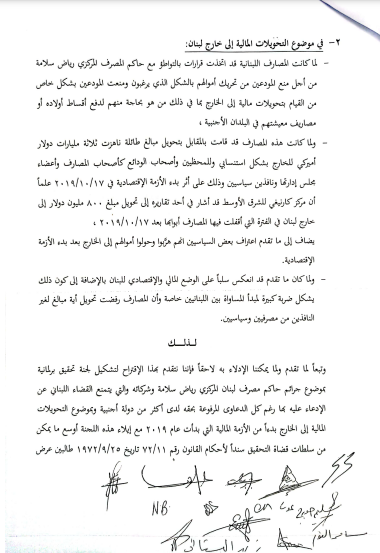 ٢- في موضوع التحويلات المالية إلى خارج لبنان:
- لما كانت المصارف اللبنانية قد اتخذت قرارات بالتواطؤ مع حاكم المصرف المركزي رياض سلامة
من أجل منع المودعين من تحريك أموالهم بالشكل الذي يرغبون ومنعت المودعين بشكل خاص
من القيام بتحويلات مالية إلى الخارج بما في ذلك من هو بحاجة منهم لدفع أقساط أولاده أو
مصاريف معيشتهم في البلدان الأجنبية ،
- ولما كانت هذه المصارف قد قامت بالمقابل بتحويل مبالغ طائلة ناهزت ثلاثة مليارات دولار
أميركي للخارج بشكل استنسابي وللمحظيين وأصحاب الودائع كأصحاب المصارف وأعضاء
مجلس إدارتها ونافذين سياسيين وذلك على أثر بدء الأزمة الإقتصادية في ٢٠١٩/١٠/١٧ علماً
أن مركز كارنيغي للشرق الأوسط قد أشار في أحد تقاريره إلى تحويل مبلغ ٨٠٠ مليون دولار إلى
خارج لبنان في الفترة التي أقفلت فيها المصارف أبوابها بعد ٢٠١٩/١٠/١٧ ،
يضاف إلى ما تقدم اعتراف بعض السياسيين انهم هرّبوا وحولوا أموالهم إلى الخارج بعد بدء الأزمة
الإقتصادية.
- ولما كان ما تقدم قد انعكس سلباً على الوضع المالي والإقتصادي للبنان بالإضافة إلى كون ذلك
يشكل ضربة كبيرة لمبدأ المساواة بين اللبنانيين خاصة وأن المصارف رفضت تحويل أية مبالغ لغير
النافذين من مصرفيين وسياسيين.
لـذلـك
وتبعاً لما تقدم ولما يمكننا الإدلاء به لاحقاً فإننا نتقدم بهذا الإقتراح لتشكيل لجنة تحقيق برلمانية
بموضوع جرائم حاكم مصرف لبنان المركزي رياض سلامة وشركائه والتي يتمنع القضاء اللبناني عن
الإدعاء عليه بها رغم كل الدعاوى المرفوعة بحقه لدى أكثر من دولة أجنبية وبموضوع التحويلات
المالية إلى الخارج بدءاً من الأزمة المالية التي بدأت عام ٢٠١٩ مع إيلاء هذه اللجنة أوسع ما يمكن
من سلطات قضاة التحقيق سنداً لأحكام القانون رقم ٧٢/١١ تاريخ ١٩٧٢/٩/٢٥ طالبين عرض
NB